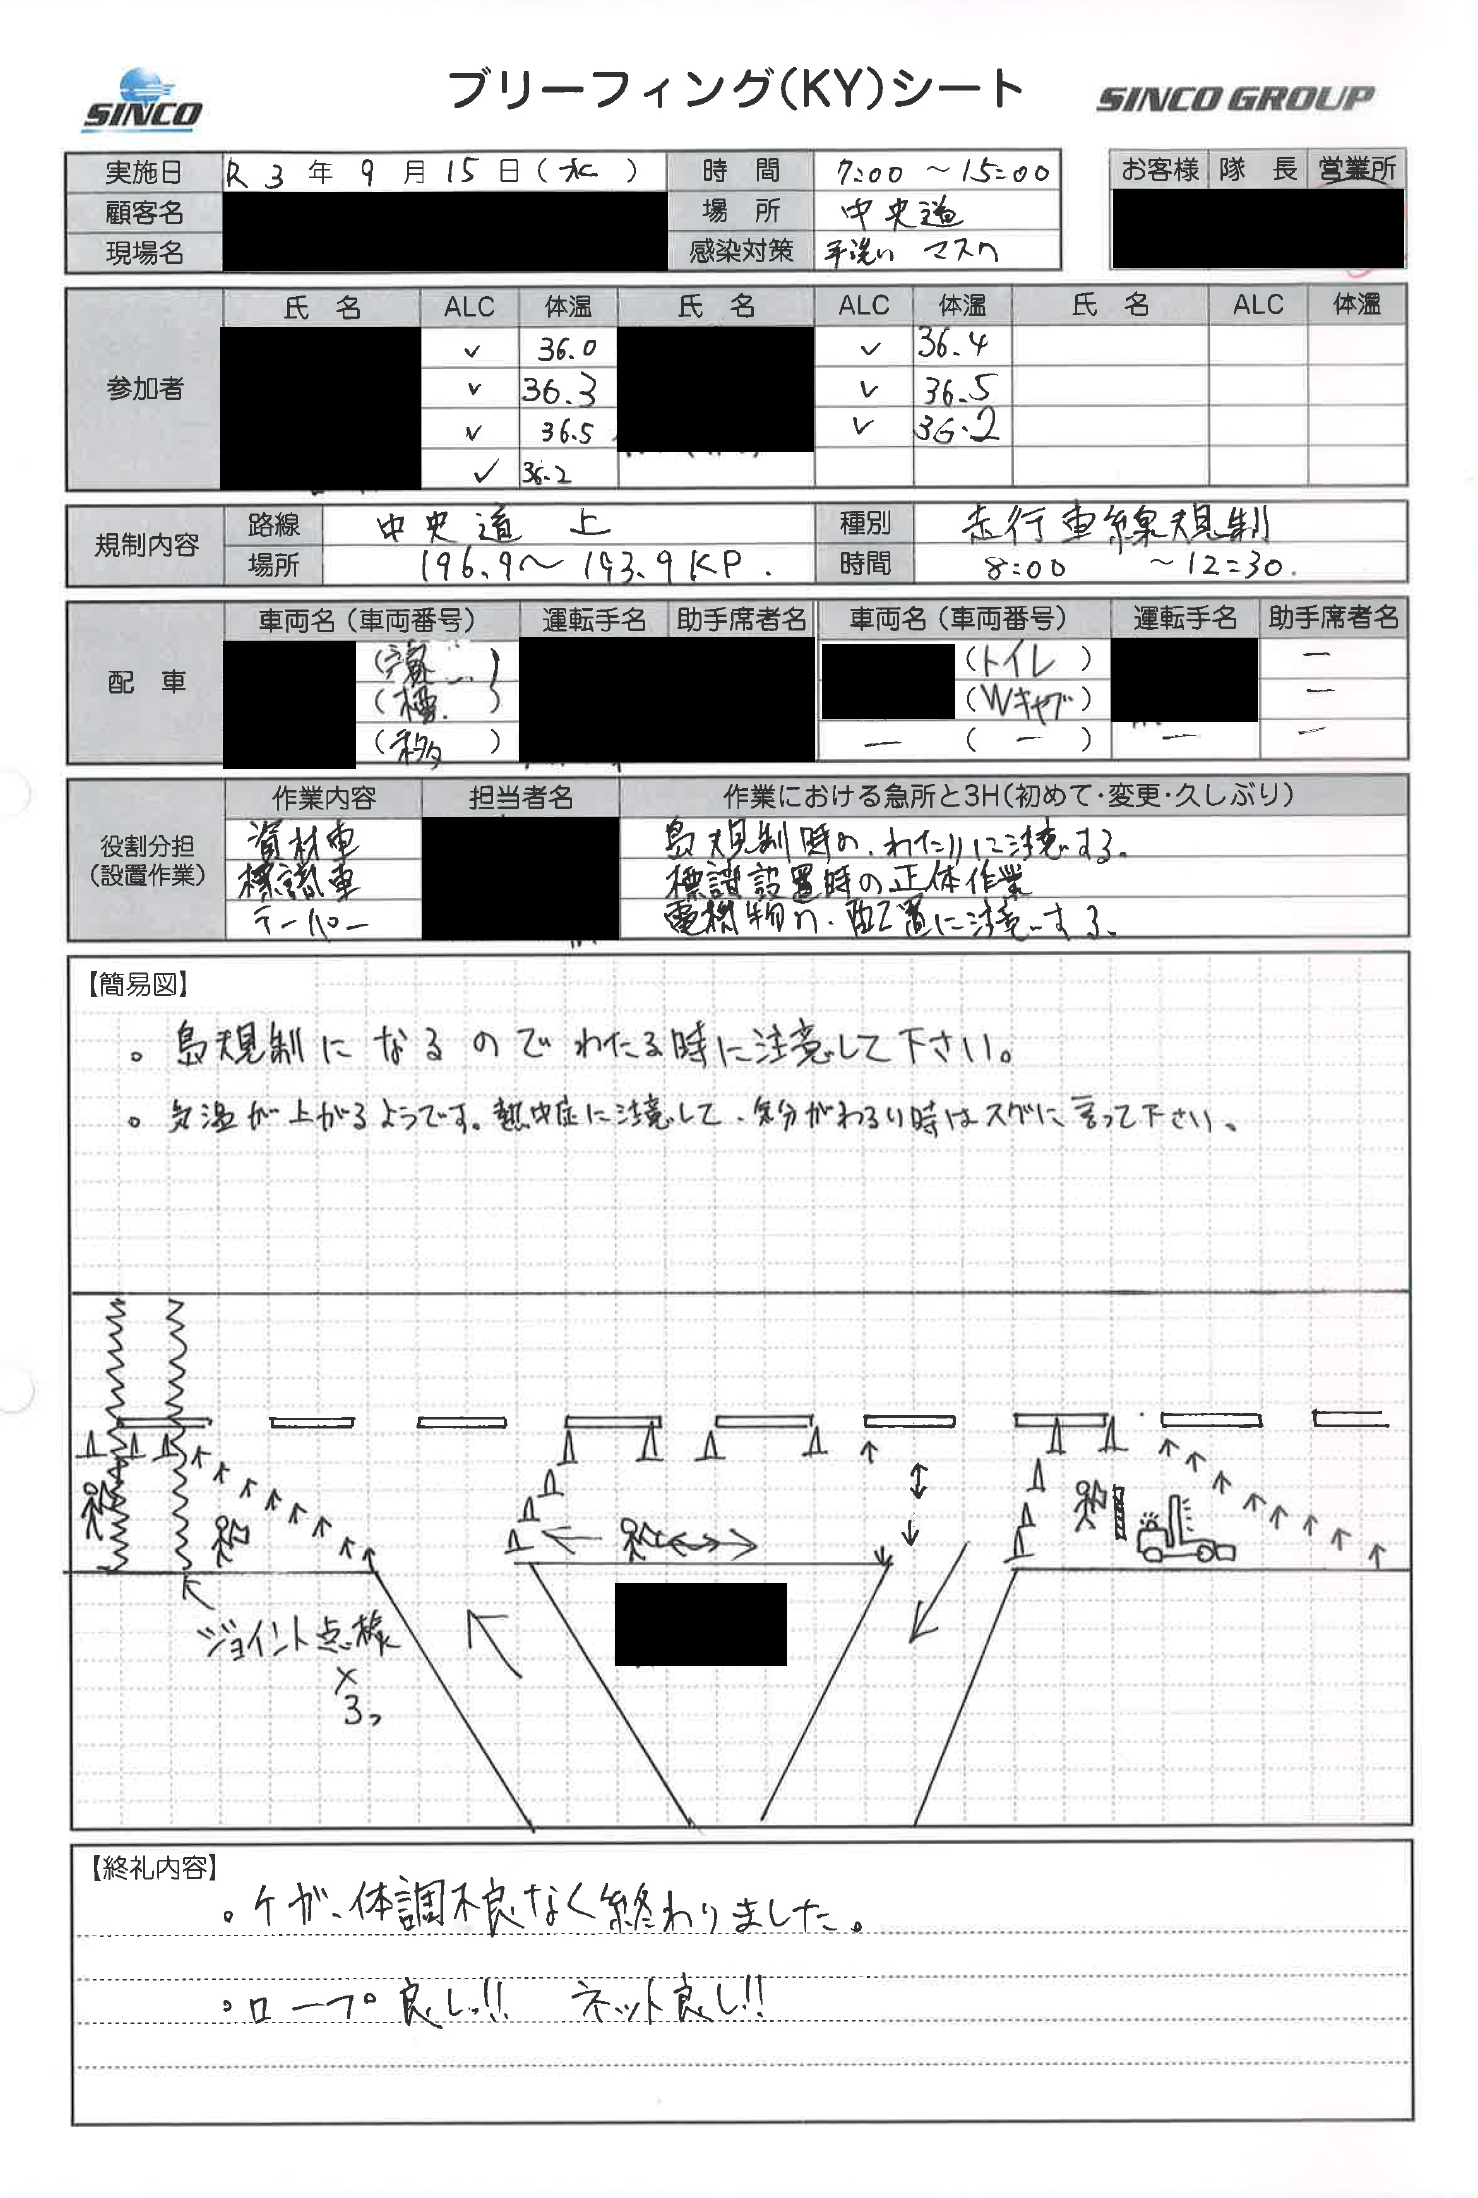 SINCO
ブリーフィング(KY)シート
SINCO GROUP
実施日 R 3 年 9 月 15 日 (水) 時 間 7:00 ～15:00
お客様 隊 長 営業所
顧客名 場 所 中央道
現場名 感染対策 手洗い マスク
参加者
氏 名 ALC 体温 氏 名 ALC 体温 氏 名 ALC 体温
✓ 36.0 ✓ 36.4
✓ 36.3 ✓ 36.5
✓ 36.5 ✓ 36.2
✓ 36.2
規制内容
路線 中央道 上 種別 走行車線規制
場所 196.9～193.9KP. 時間 8:00 ～12:30.
配 車
車両名(車両番号) 運転手名 助手席者名 車両名(車両番号) 運転手名 助手席者名
(資) (トイレ) ー
(標.) (Wキャブ) ー
(移) ー (ー) ー ー
役割分担
(設置作業)
作業内容 担当者名 作業における急所と3H(初めて・変更・久しぶり)
資材車 島規制時の、わたりに注意する。
標識車 標識設置時の正体作業
テーパー 電機物の、配置に注意する。
【簡易図】
。島規制になるのでわたる時に注意して下さい。
。気温が上がるようです。熱中症に注意して、気分がわるい時はスグに言って下さい。
ジョイント点検
×
3っ
【終礼内容】
。ケガ、体調不良なく終わりました。
。ロープ良し!! ネット良し!!